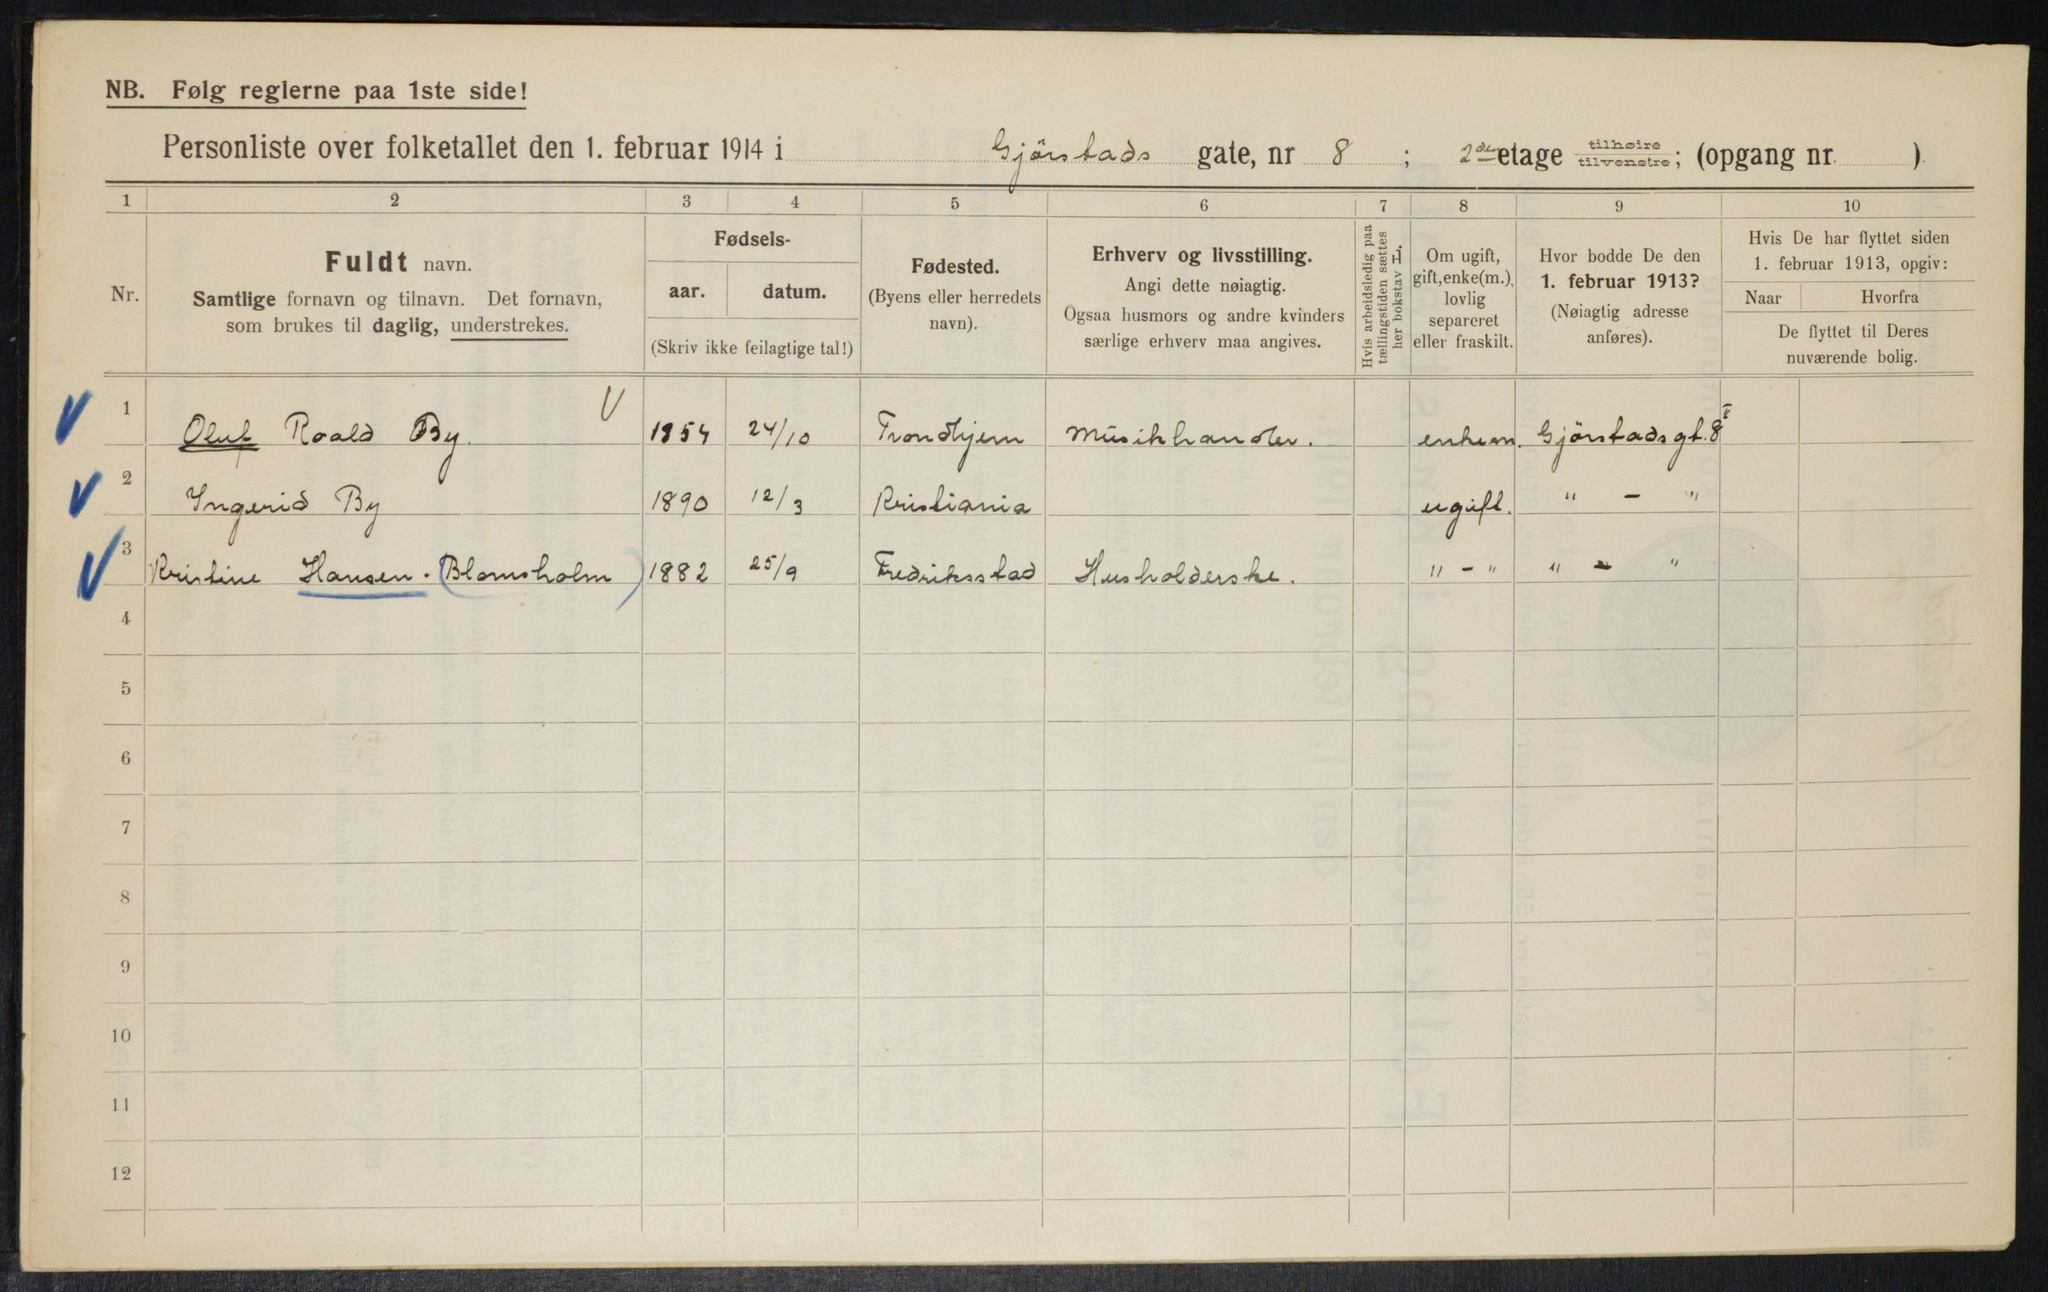 NB. Følg reglerne paa 1ste side!
Personliste over folketallet den 1. februar 1914 i Gjörstads gate, nr 8 ; 2den etage tilhøire tilvenstre; (opgang nr. )
1 2 3 4 5 6 7 8 9 10
Nr.
Fuldt navn.
Samtlige fornavn og tilnavn. Det fornavn,
som brukes til daglig, understrekes.
Fødsels-
aar. datum.
(Skriv ikke feilagtige tal!)
Fødested.
(Byens eller herredets
navn).
Erhverv og livsstilling.
Angi dette nøiagtig.
Ogsaa husmors og andre kvinders
særlige erhverv maa angives.
Hvis arbeidsledig paa
tællingstiden sættes
her bokstav L.
Om ugift,
gift, enke(m.),
lovlig
separeret
eller fraskilt.
Hvor bodde De den
1. februar 1913?
(Nøiagtig adresse
anføres).
Hvis De har flyttet siden
1. februar 1913, opgiv:
Naar Hvorfra
De flyttet til Deres
nuværende bolig.
1 Oluf Roald By. 1854 24/10 Trondhjem Musikhandler. enkem. Gjörstadsgt. 8 II
2 Ingerid By 1890 12/3 Kristiania ugift. " - "
3 Kristine Hansen. (Blomsholm) 1882 25/9 Fredriksstad Husholderske. " - " " - "
4
5
6
7
8
9
10
11
12